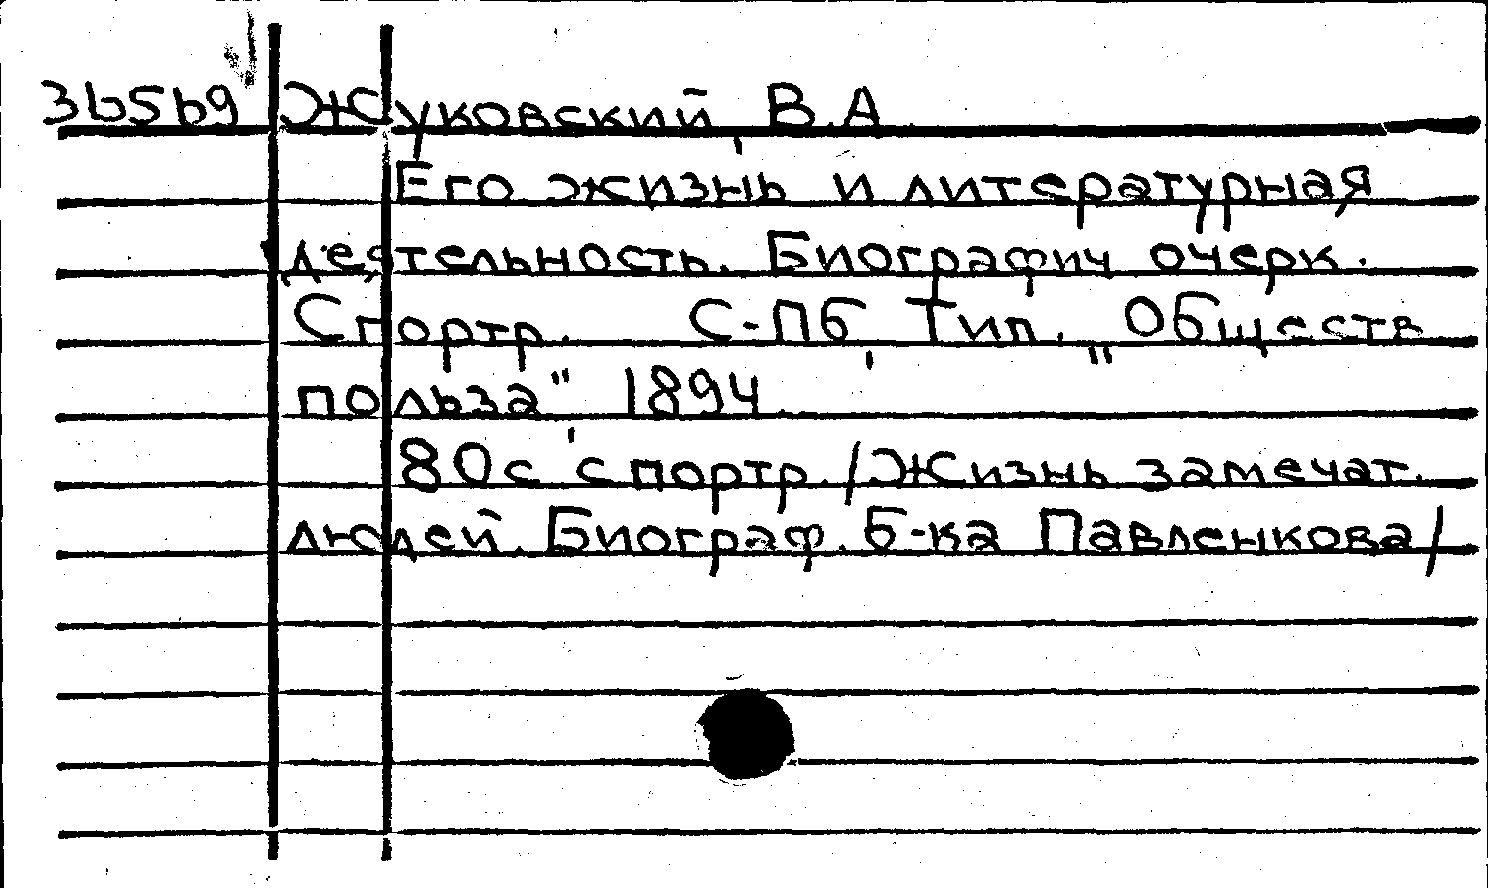 36569 Жуковский, В.А.
Его жизнь и литературная
деятельность. Биографич очерк.
С портр. С-Пб, Тип. "Обществ
польза", 1894.
80 с с портр. /Жизнь замечат.
людей. Биограф. б-ка Павленкова/